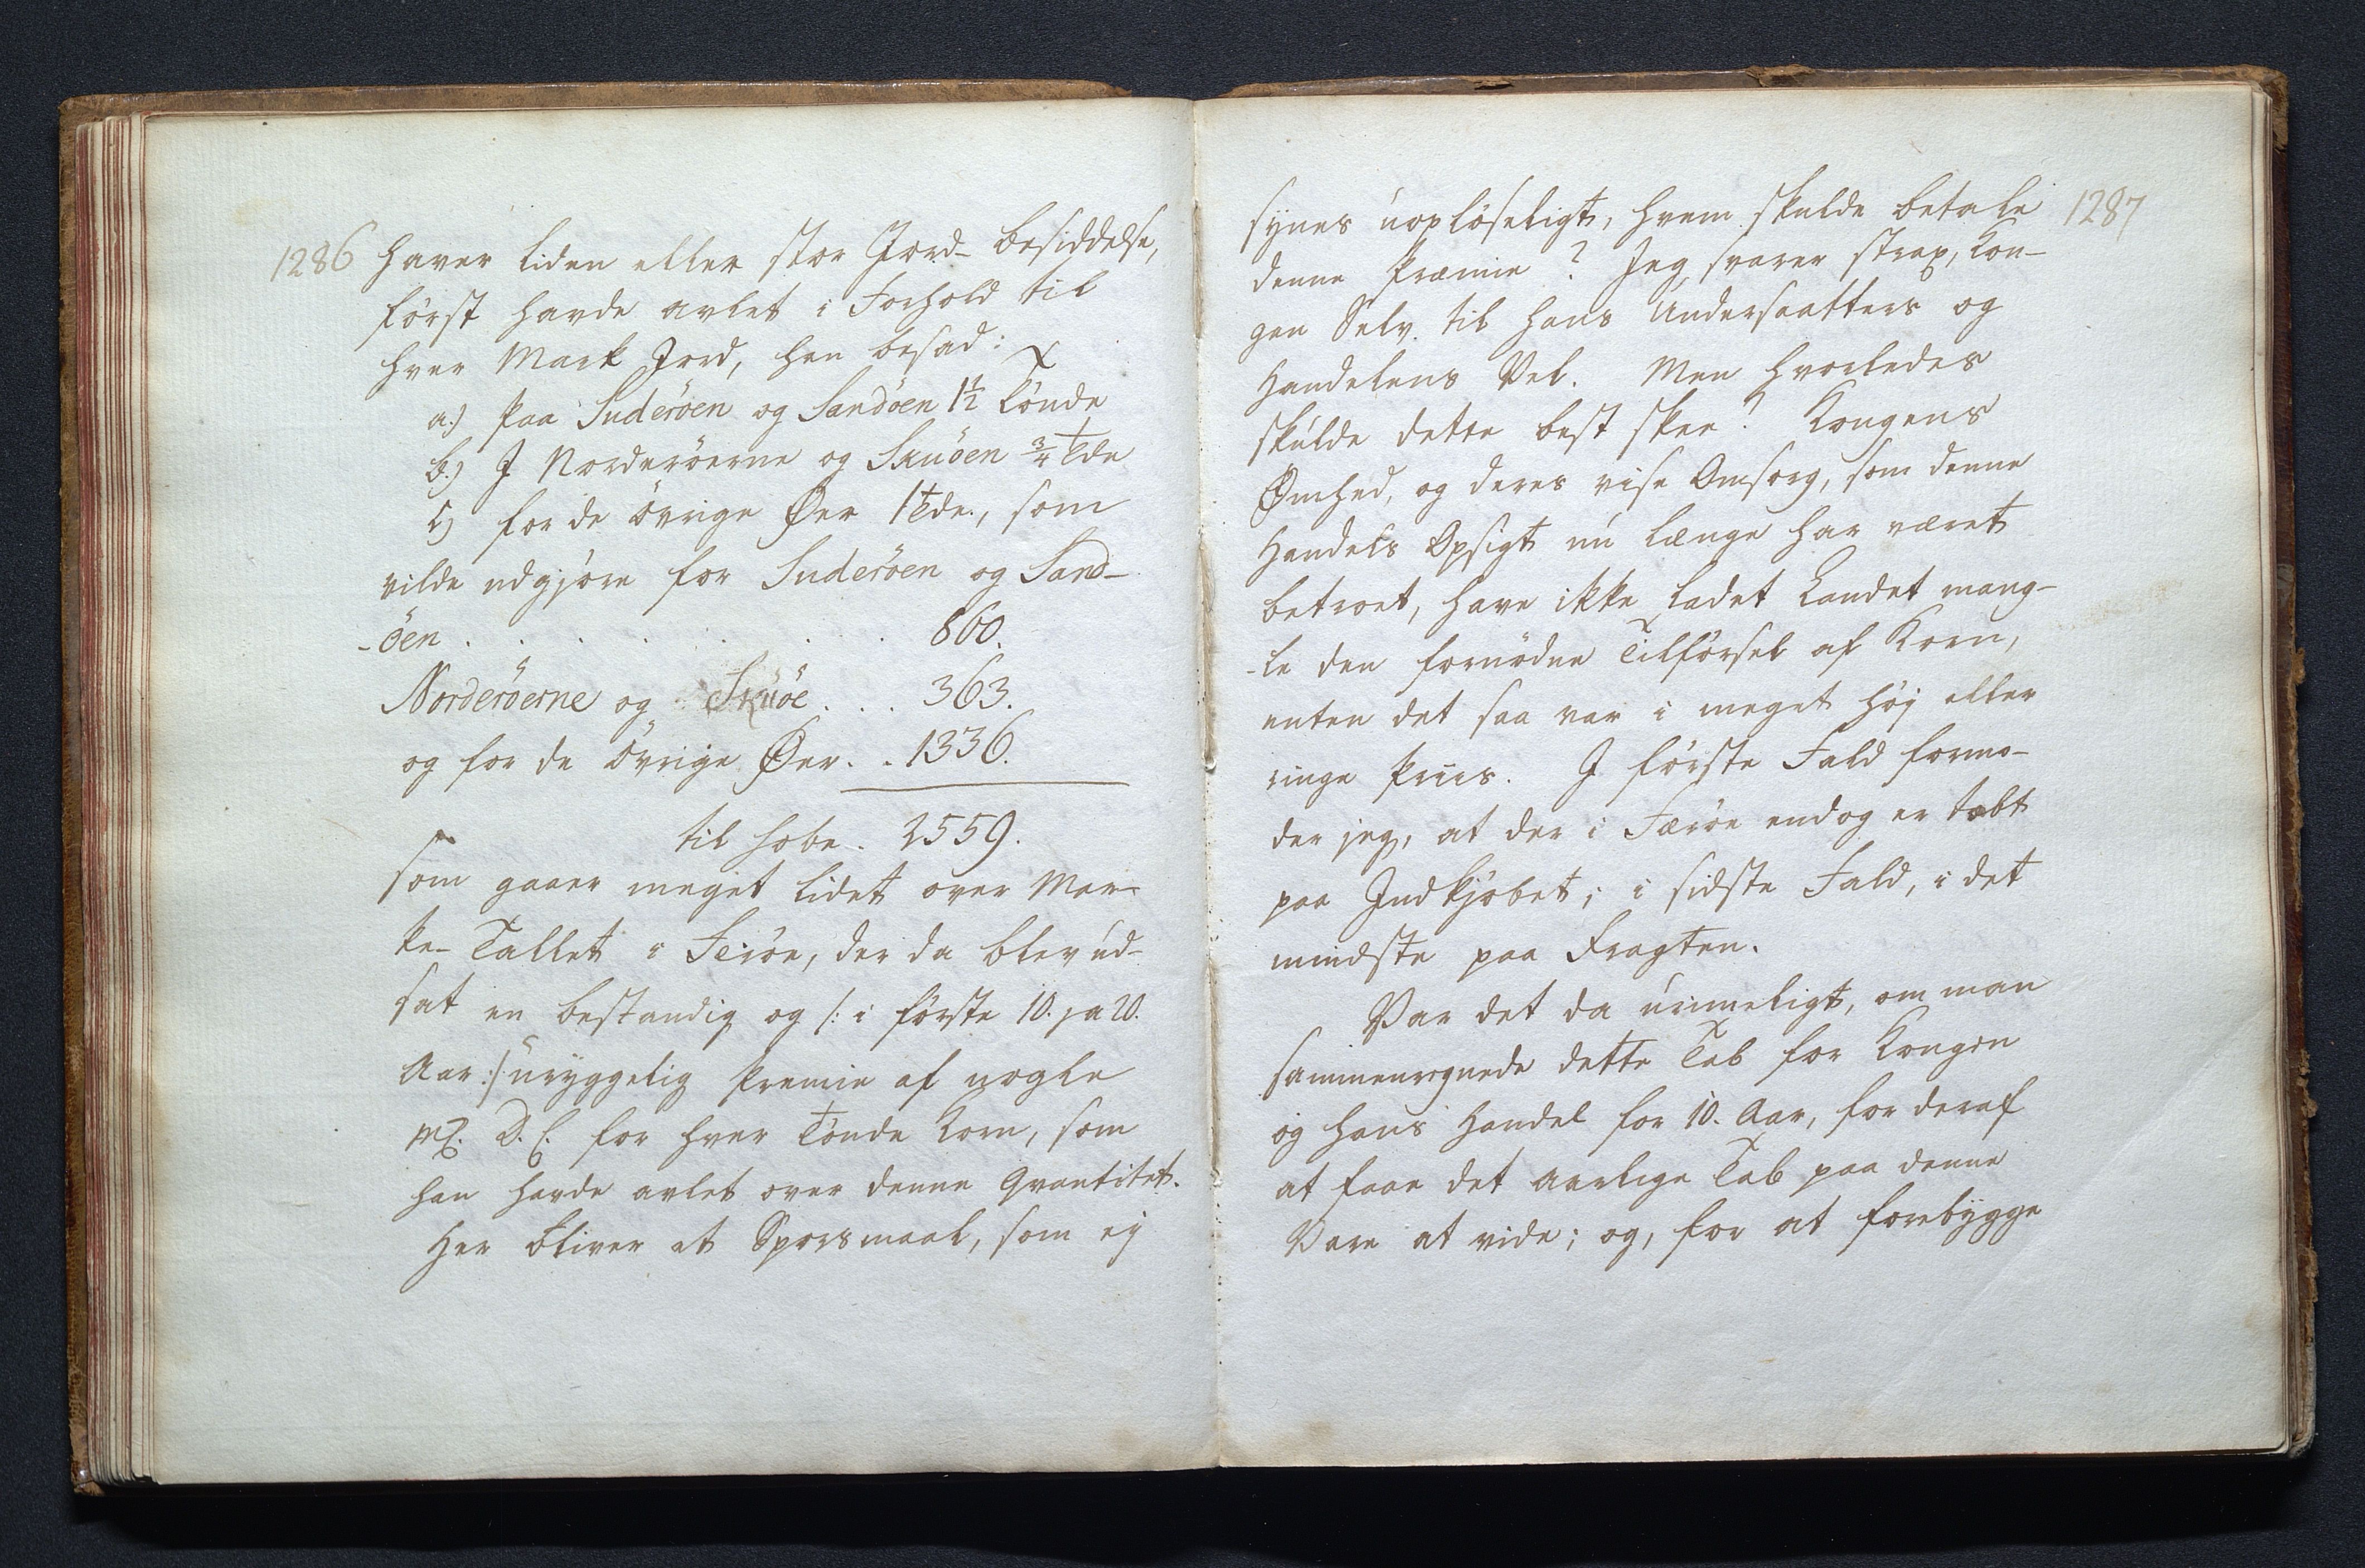 1286 haver liden eller stor Jord- besiddelse,
först havde avlet i Forhold til
hver Mark Jord, han besad:
a.) Paa Suderöen og Sandöen 1½ Tönde
b.) I Norderöerne og Skuöen ¾ Tde
c) for de övrige Øer 1 Tde., som
vilde udgjöre for Suderöen og Sand-
-öen . . . . . . . 860.
Norderöerne og Skuöe . . . 363.
og for de övrige Øer . . 1336.
til hobe . 2559.
som gaaer meget lidet over Mar-
ke-Tallet i Feröe, der da blev ud-
sat en bestandig og /: i förste 10. ja 20.
Aar :/ uryggelig Premie af nogle
mk. D. C. for hver Tönde Korn, som
han havde avlet over denne Qvantitet.
Her bliver et Spörsmaal, som ej
synes uoplöseligt, hvem skulde betale 1287
denne Præmie? Jeg svarer strax, Kon-
gen Selv til hans Undersaatters og
Handelens Vel. Men hvorledes
skulde dette best skee? Kongens
Ømhed, og deres vise Omsorg, som denne
Handels Opsigt nu længe har været
betroet, have ikke ladet Landet mang-
-le den fornödne Tilförsel af Korn,
enten det saa var i meget höj eller
ringe Priis. I förste Fald formo-
der jeg, at der i Færöe endog er tabt
paa Indkjöbet; i sidste Fald, i det
mindste paa Fragten.
Var det da urimeligt, om man
sammenregnede dette Tab for Kongen
og hans Handel for 10. Aar, for deraf
at faae det aarlige Tab paa denne
Vare at vide; og, for at forebygge